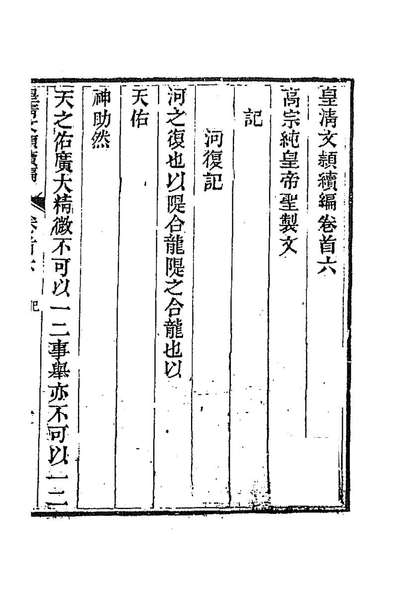 皇淸文頴續編卷首六
高宗純皇帝聖製文
記
河復記
河之復也以隄合龍隄之合龍也以
天佑
神助然
天之佑廣大精微不可以一二事舉亦不可以一二
皇淸文頴續編
卷首六
記